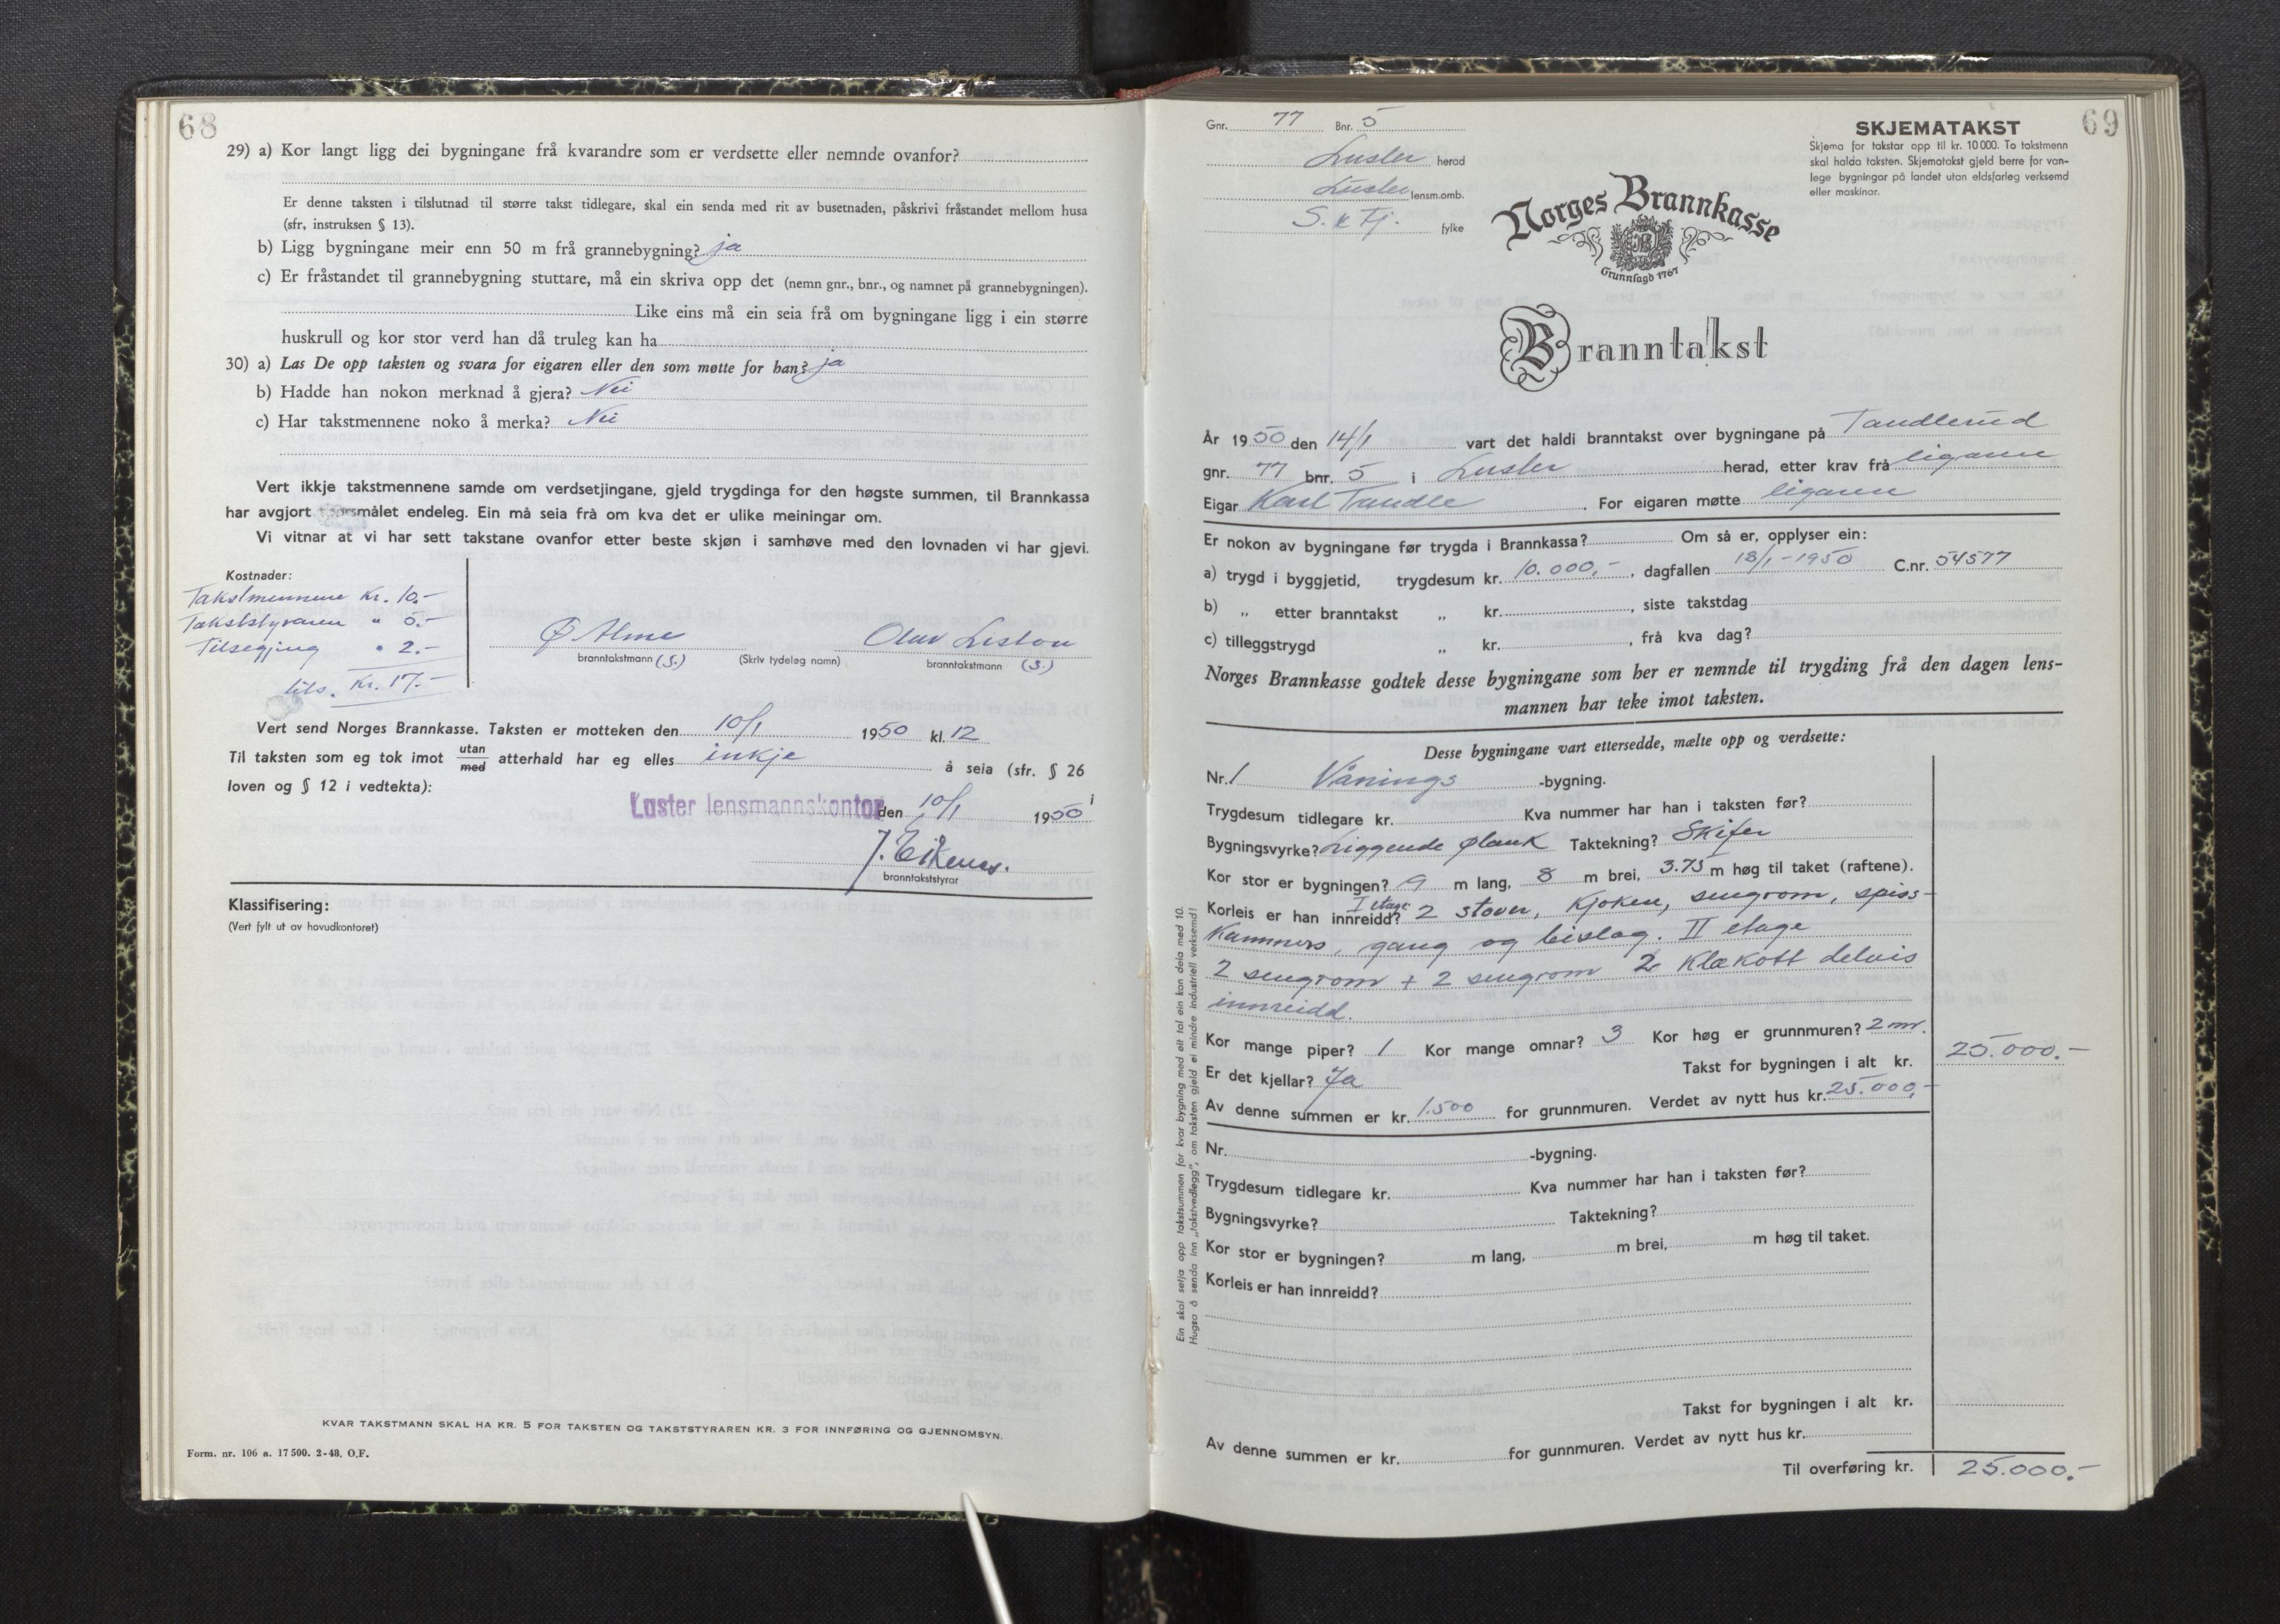 68
29) a) Kor langt ligg dei bygningane frå kvarandre som er verdsette eller nemnde ovanfor?
Er denne taksten i tilslutnad til større takst tidlegare, skal ein senda med rit av busetnaden, påskrivi fråstandet mellom husa
(sfr, instruksen § 13).
b) Ligg bygningane meir enn 50 m frå grannebygning? ja
c) Er fråstandet til grannebygning stuttare, må ein skriva opp det (nemn gnr., bnr., og namnet på grannebygningen).
Like eins må ein seia frå om bygningane ligg i ein større
huskrull og kor stor verd han då truleg kan ha
30) a) Las De opp taksten og svara for eigaren eller den som møtte for han? ja
b) Hadde han nokon merknad å gjera? Nei
c) Har takstmennene noko å merka? Nei
Vert ikkje takstmennene samde om verdsetjingane, gjeld trygdinga for den høgste summen, til Brannkassa
har avgjort spørsmålet endeleg. Ein må seia frå om kva det er ulike meiningar om.
Vi vitnar at vi har sett takstane ovanfor etter beste skjøn i samhøve med den lovnaden vi har gjevi.
Kostnader:
Takstmennene Kr. 10.-
Takststyraren " 5.-
Tilsegjing " 2.-
tils. Kr. 17.-
Ø Alme Olav Leston
branntakstmann (S.) (Skriv tydeleg namn) branntakstmann (S.)
Vert send Norges Brannkasse. Taksten er motteken den 10/1 1950 kl. 12
Til taksten som eg tok imot utan med atterhald har eg elles inkje å seia (sfr. § 26
loven og § 12 i vedtekta):
Luster lensmannskontor den 10/1 1950 i
J. Eikenes.
branntakststyrar
Klassifisering:
(Vert fylt ut av hovudkontoret)
KVAR TAKSTMANN SKAL HA KR. 5 FOR TAKSTEN OG TAKSTSTYRAREN KR. 3 FOR INNFØRING OG GJENNOMSYN.
Form. nr. 106 a. 17500. 2-48. O.F.
69
Gnr. 77 Bnr. 5
Luster herad
Luster lensm.omb.
S. & Fj. fylke
SKJEMATAKST
Skjema for takstar opp til kr. 10 000. To takstmenn
skal halda taksten. Skjematakst gjeld berre for van-
lege bygningar på landet utan eldsfarleg verksemd
eller maskinar.
Norges Brannkasse
Grunnlagd 1767
Branntakst
År 1950 den 14/1 vart det haldi branntakst over bygningane på Tandlerud
gnr. 77 bnr. 5 i Luster herad, etter krav frå eigaren
Eigar Karl Tandle. For eigaren møtte eigaren
Er nokon av bygningane før trygda i Brannkassa? Om så er, opplyser ein:
a) trygd i byggjetid, trygdesum kr. 10.000,-, dagfallen 18/1-1950 C.nr. 54577
b) „ etter branntakst „ kr. , siste takstdag
c) tilleggstrygd „ kr. , frå kva dag?
Norges Brannkasse godtek desse bygningane som her er nemnde til trygding frå den dagen lens-
mannen har teke imot taksten.
Desse bygningane vart ettersedde, mælte opp og verdsette:
Nr. 1 Vånings -bygning.
Trygdesum tidlegare kr. Kva nummer har han i taksten før?
Bygningsvyrke? Liggende plank Taktekning? Skifer
Kor stor er bygningen? 9 m lang, 8 m brei, 3.75 m høg til taket (raftene).
Korleis er han innreidd? I etage: 2 stover, kjøken, sengrom, spiss-
kammers, gang og bislag. II etage
2 sengrom + 2 sengrom 2 klekott delvis
innreidd.
Kor mange piper? 1 Kor mange omnar? 3 Kor høg er grunnmuren? 2 m.
Er det kjellar? Ja Takst for bygningen i alt kr. 25.000.-
Av denne summen er kr. 1.500 for grunnmuren. Verdet av nytt hus kr. 25.000,-
Nr. -bygning.
Trygdesum tidlegare kr. Kva nummer har han i taksten før?
Bygningsvyrke? Taktekning?
Kor stor er bygningen? m lang, m brei, m høg til taket.
Korleis er han innreidd?
Takst for bygningen i alt kr.
Av denne summen er kr. for gunnmuren. Verdet av nytt hus kr.
Til overføring kr. 25.000.-
Ein skal setja opp takstsummen for kvar bygning med eit tal ein kan dela med 10.
Hugsa å senda inn „takstvedlegg", om taksten gjeld ei mindre industriell verksemd!